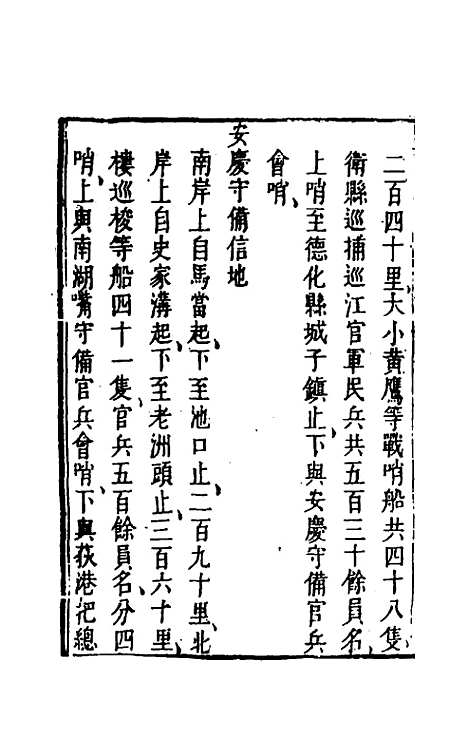 二百四十里大小黃鷹等戰哨船共四十八隻
衛縣巡捕巡江官軍民兵共五百三十餘員名
上哨至德化縣城子鎮止下與安慶守備官兵
會哨
安慶守備信地
南岸上自馬當起下至池口止二百九十里北
岸上自史家溝起下至老洲頭止三百六十里
樓巡梭等船四十一隻官兵五百餘員名分四
哨上與南湖嘴守備官兵會哨下與荻港把總